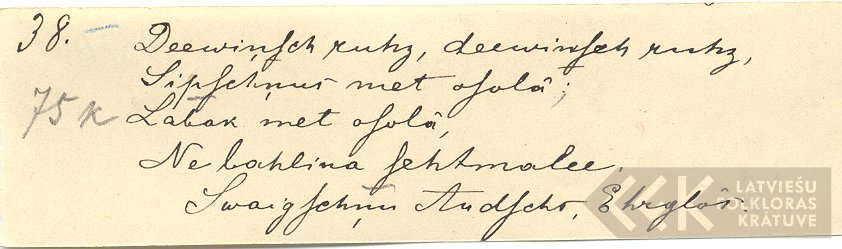 38. Deewiņsch ruhz, deewinsch ruhz,
75 k Sipschņus met osolâ;
Labak met osolâ,
Ne bahliņa sehtmalee.
Swaigschņu Andscho, Ehrglôs.
LATVIEŠU
FOLKLORAS
KRĀTUVE